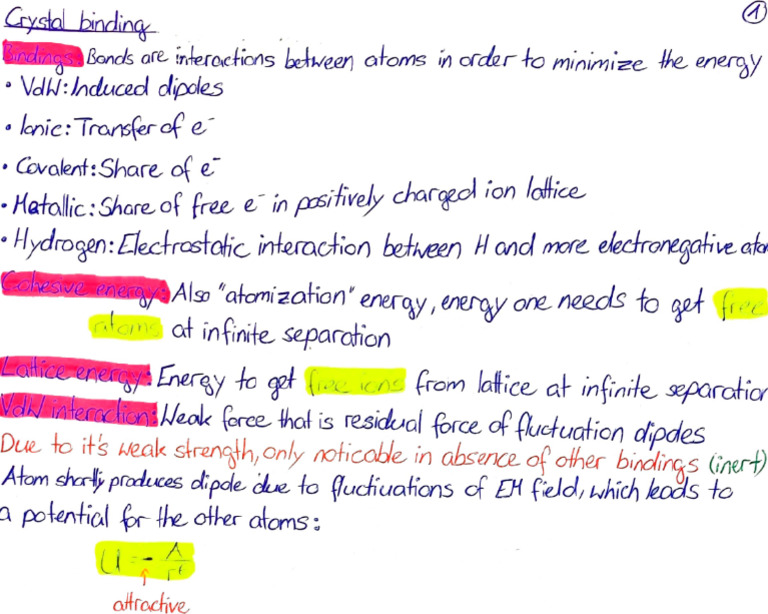 Crystal binding
1
Bindings: Bonds are interactions between atoms in order to minimize the energy
• VdW: Induced dipoles
• Ionic: Transfer of e⁻
• Covalent: Share of e⁻
• Metallic: Share of free e⁻ in positively charged ion lattice
• Hydrogen: Electrostatic interaction between H and more electronegative atom
Cohesive energy: Also "atomization" energy, energy one needs to get free
atoms at infinite separation
Lattice energy: Energy to get free ions from lattice at infinite separation
VdW interaction: Weak force that is residual force of fluctuation dipoles
Due to it's weak strength, only noticable in absence of other bindings (inert)
Atom shortly produces dipole due to fluctiuations of EM field, which leads to
a potential for the other atoms:
U = - A/r⁶
attractive